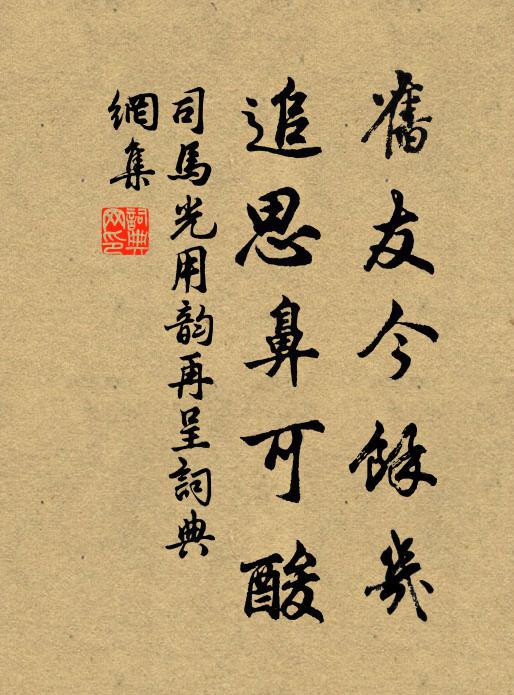 舊友今餘幾
追思鼻可酸
司馬光用韵再呈詞典
網集
詞典
网印